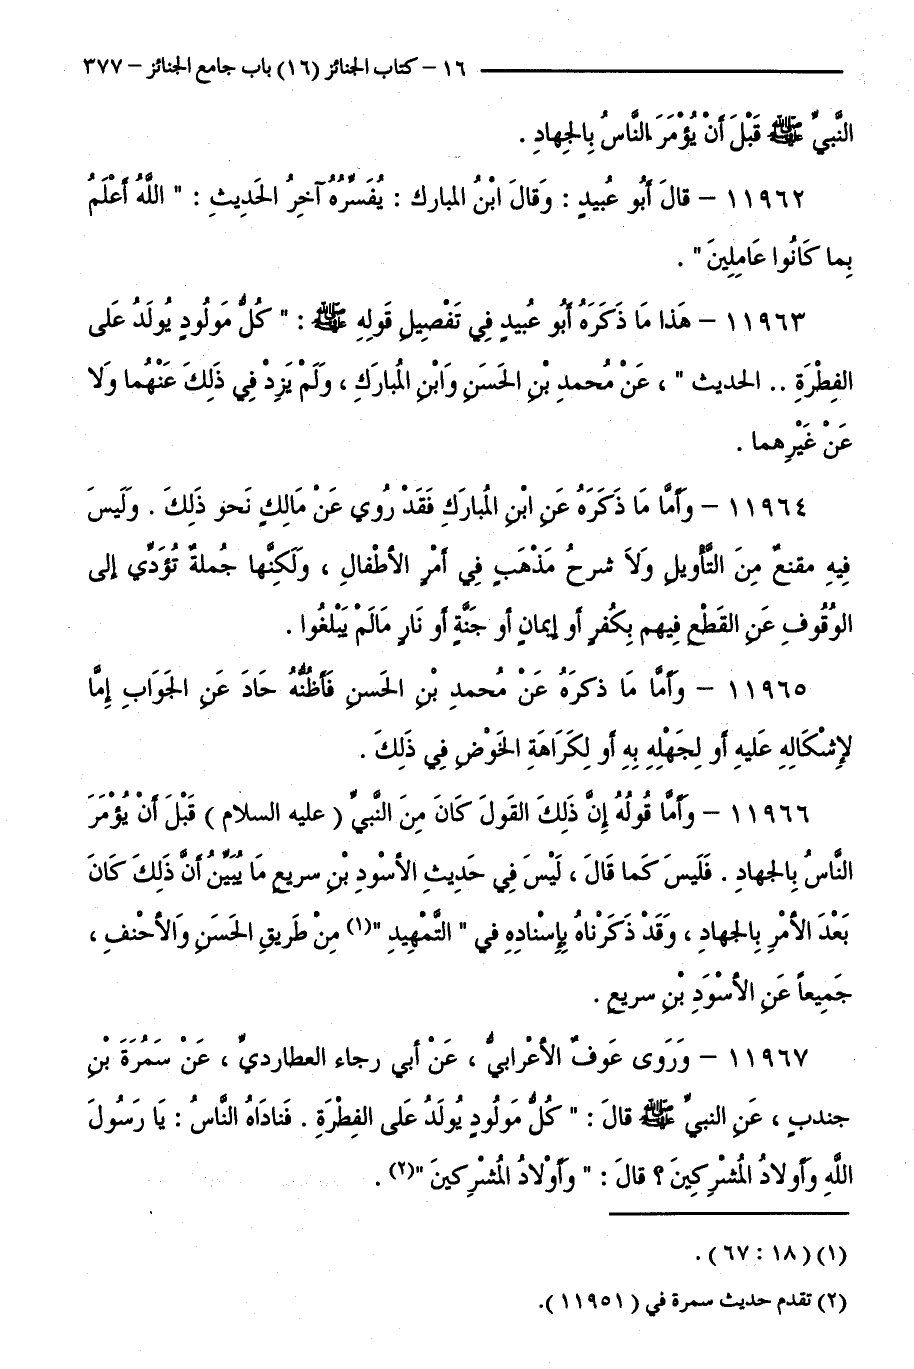 ١٦ – كتاب الجنائز (١٦) باب جامع الجنائز – ٣٧٧
النَّبيِّ ﷺ قَبْلَ أَنْ يُؤْمَرَ النَّاسُ بِالجهادِ .
١١٩٦٢ – قالَ أَبُو عُبيدٍ : وَقالَ ابْنُ المبارك : يُفَسِّرُهُ آخِرُ الحَديثِ : " اللَّهُ أَعْلَمُ
بِما كَانُوا عَامِلِينَ " .
١١٩٦٣ – هَذا مَا ذَكَرَهُ أَبُو عُبيدٍ فِي تَفْصِيلِ قَولِهِ ﷺ : " كُلُّ مَولُودٍ يُولَدُ عَلى
الفِطْرَةِ .. الحديث " ، عَنْ مُحمدِ بْنِ الحَسَنِ وَابْنِ المُبارَكِ ، وَلَمْ يَزِدْ فِي ذَلِكَ عَنْهُما وَلَا
عَنْ غَيْرِهما .
١١٩٦٤ – وَأَمَّا مَا ذَكَرَهُ عَنِ ابْنِ المُبارَكِ فَقَدْ رُوي عَنْ مَالِكٍ نَحو ذَلِكَ . وَلَيسَ
فِيهِ مقنعٌ مِنَ التَّأْويلِ وَلَا شرحُ مَذْهَبٍ فِي أَمْرِ الأطْفالِ ، ولَكِنَّها جُملةٌ تُؤَدِّي إلى
الوُقُوفِ عَنِ القَطْعِ فِيهم بِكُفرٍ أو إيمانٍ أو جَنَّةٍ أو نَارٍ مَالَمْ يَبْلغُوا .
١١٩٦٥ – وَأَمَّا مَا ذكرَهُ عَنْ مُحمدِ بْنِ الحَسنِ فَأَظُنُّهُ حَادَ عَنِ الجَوَابِ إِمَّا
لإِشْكَالِهِ عَليهِ أو لِجَهْلِهِ بِهِ أو لِكَرَاهَةِ الخَوْضِ فِي ذَلِكَ .
١١٩٦٦ – وَأَمَّا قُولُهُ إِنَّ ذَلِكَ القَولَ كَانَ مِنَ النَّبيِّ ( عليه السلام ) قَبْلَ أَنْ يُؤْمَرَ
النَّاسُ بِالجهادِ . فَلَيسَ كَما قالَ ، لَيْسَ فِي حَديثِ الأسْودِ بْنِ سريعٍ مَا يُبَيِّنُ أَنَّ ذَلِكَ كَانَ
بَعْدَ الأمْرِ بِالجهادِ ، وَقَدْ ذَكَرْناهُ بِإِسْنادِهِ في " التَّمْهِيدِ "(١) مِنْ طَرِيقِ الحَسَنِ وَالأحْنفِ ،
جَمِيعاً عَنِ الأسْوَدِ بْنِ سريعٍ .
١١٩٦٧ – وَرَوى عَوفٌ الأعْرابيُّ ، عَنْ أبي رجاء العطارديِّ ، عَنْ سَمُرَةَ بْنِ
جندبٍ ، عَنِ النبيِّ ﷺ قالَ : " كُلُّ مَولُودٍ يُولَدُ عَلى الفِطْرَةِ . فَنادَاهُ النَّاسُ : يَا رَسُولَ
اللَّهِ وَأَولادُ المُشْرِكِينَ ؟ قالَ : " وَأَوْلادُ المُشْرِكينَ "(٢) .
(١) (١٨ : ٦٧) .
(٢) تقدم حديث سمرة في (١١٩٥١).